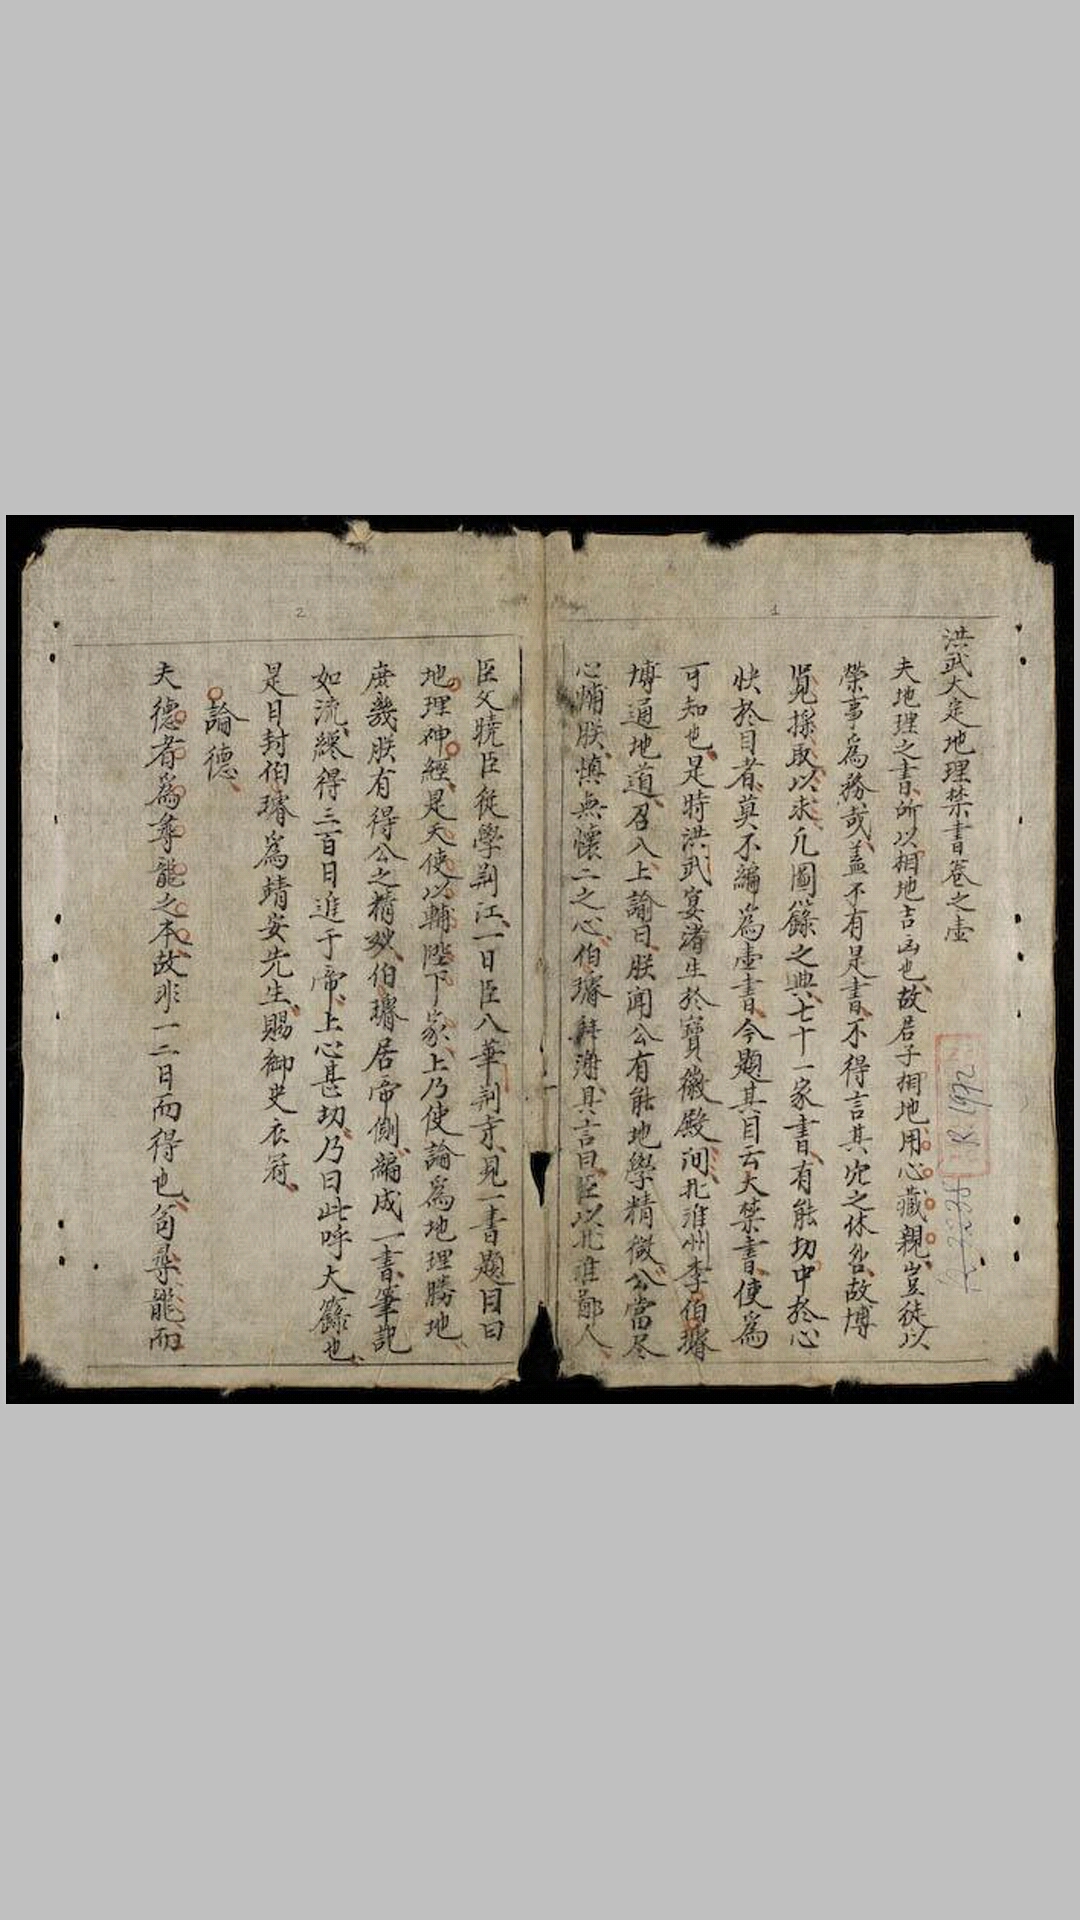 洪武大定地理禁書卷之壺
夫地理之書所以相地吉凶也故君子相地用心藏親豈徒以
榮事爲務哉盖不有是書不得言其穴之休咎故博
覓採取以求凢圖籙之典七十一家書有能切中於心
快於目者莫不編爲壺書今題其目云大禁書使爲
可知也是時洪武宴渚生於寶徽殿问北淮州李伯璿
博通地道召入上諭曰朕聞公有能地學精微公當尽
心輔朕慎無懷二之心伯璿拜謝具言曰臣以北淮鄙人
臣父曉臣從學荆江一日臣入華荆寺見一書題目曰
地理神經是天使以輔陛下家上乃使論爲地理勝地
庶幾朕有得公之精妙伯璿居帝側編成一書筆記
如流纔得三百日進于帝上心甚切乃曰此呼大籙也
是日封伯璿爲靖安先生賜御史衣冠
論德
夫德者爲尋龍之本故非一二日而得也苟尋龍而
1
2
R.1992